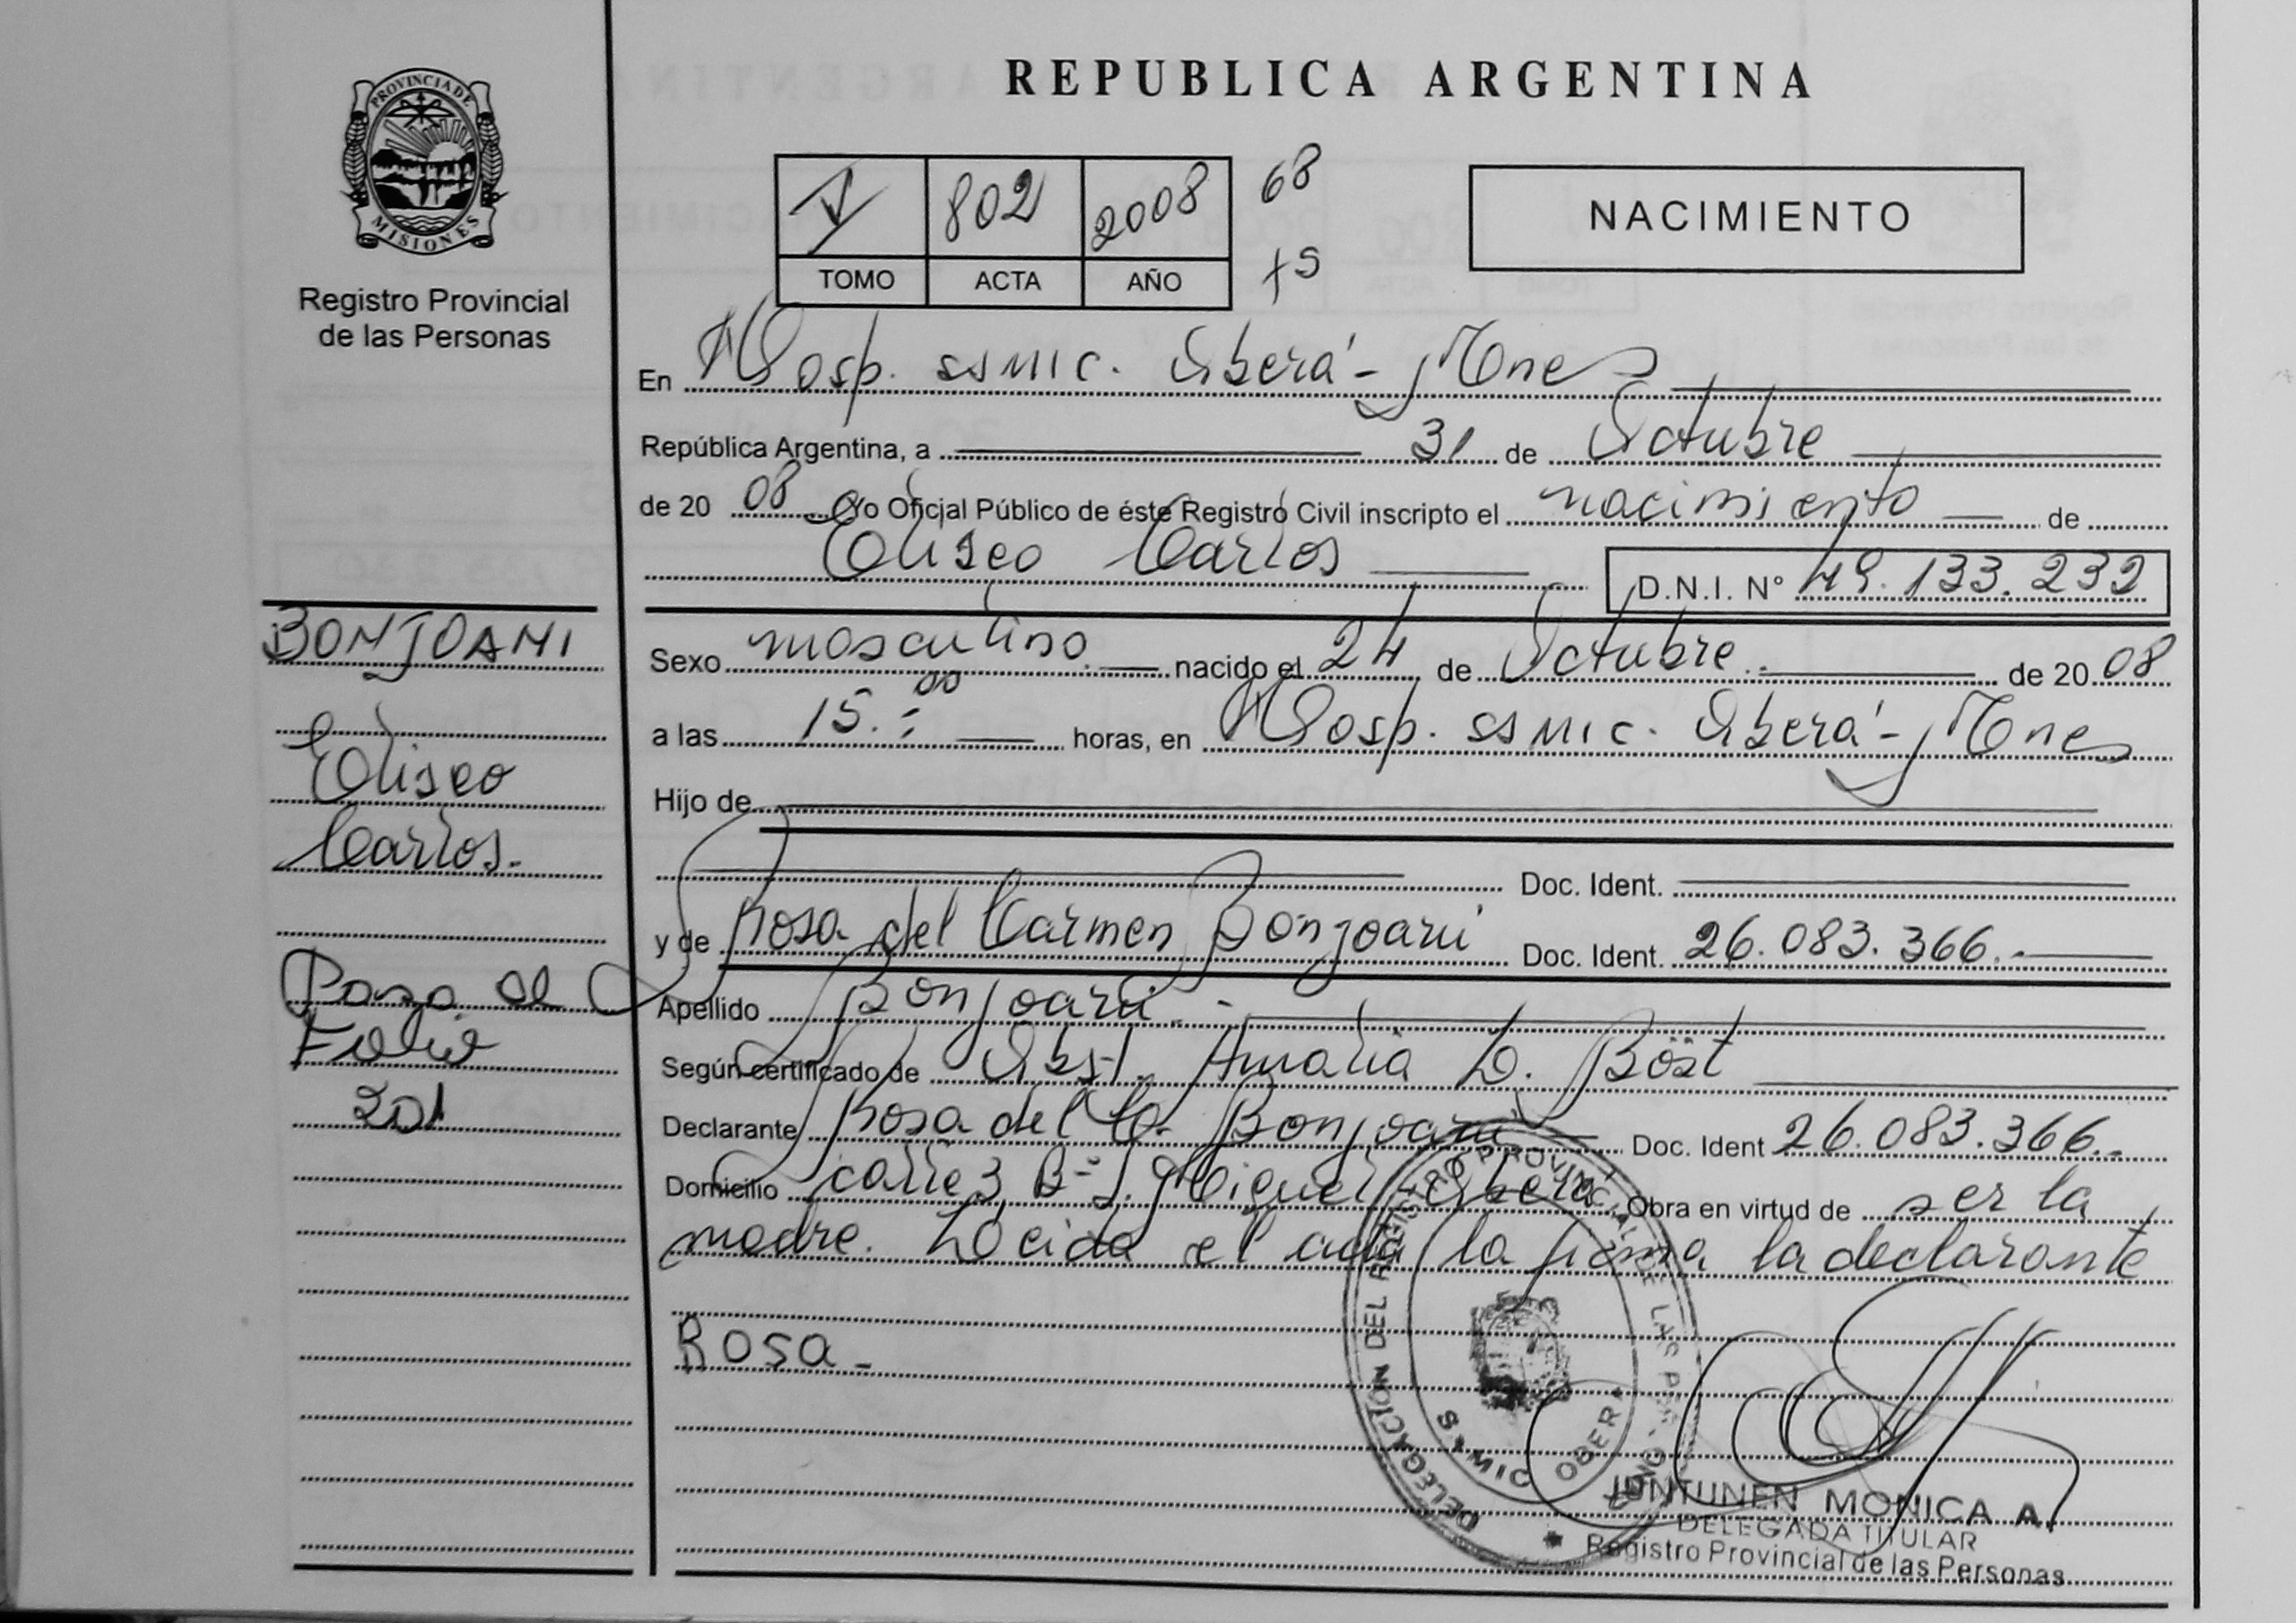 PROVINCIA DE
MISIONES
Registro Provincial
de las Personas
REPUBLICA ARGENTINA
V 802 2008 68
TOMO ACTA AÑO
NACIMIENTO
En Hosp. SSMIC. Oberá - Mnes
República Argentina, a 31 de Octubre
de 20 08 Yo Oficial Público de éste Registro Civil inscripto el nacimiento de
Eliseo Carlos D.N.I. N° 49.133.232
Sexo masculino nacido el 24 de Octubre de 20 08
a las 15:00 horas, en Hosp. SSMIC. Oberá - Mnes
Hijo de
Doc. Ident.
y de Rosa del Carmen Bonjoani Doc. Ident. 26.083.366.-
Apellido Bonjoani.-
Según certificado de Obst. Amalia D. Böst
Declarante Rosa del C. Bonjoani Doc. Ident 26.083.366.-
Domicilio calle 3 B° S. Miguel Oberá Obra en virtud de ser la
madre. Leida el acta la firma la declarante
Rosa-
BONJOANI
Eliseo
Carlos.-
Pasa al
Folio
201
DELEGACION DEL REGISTRO PROVINCIAL DE LAS PERSONAS
SAMIC OBERA
JUNTUNEN MONICA A.
DELEGADA TITULAR
Registro Provincial de las Personas